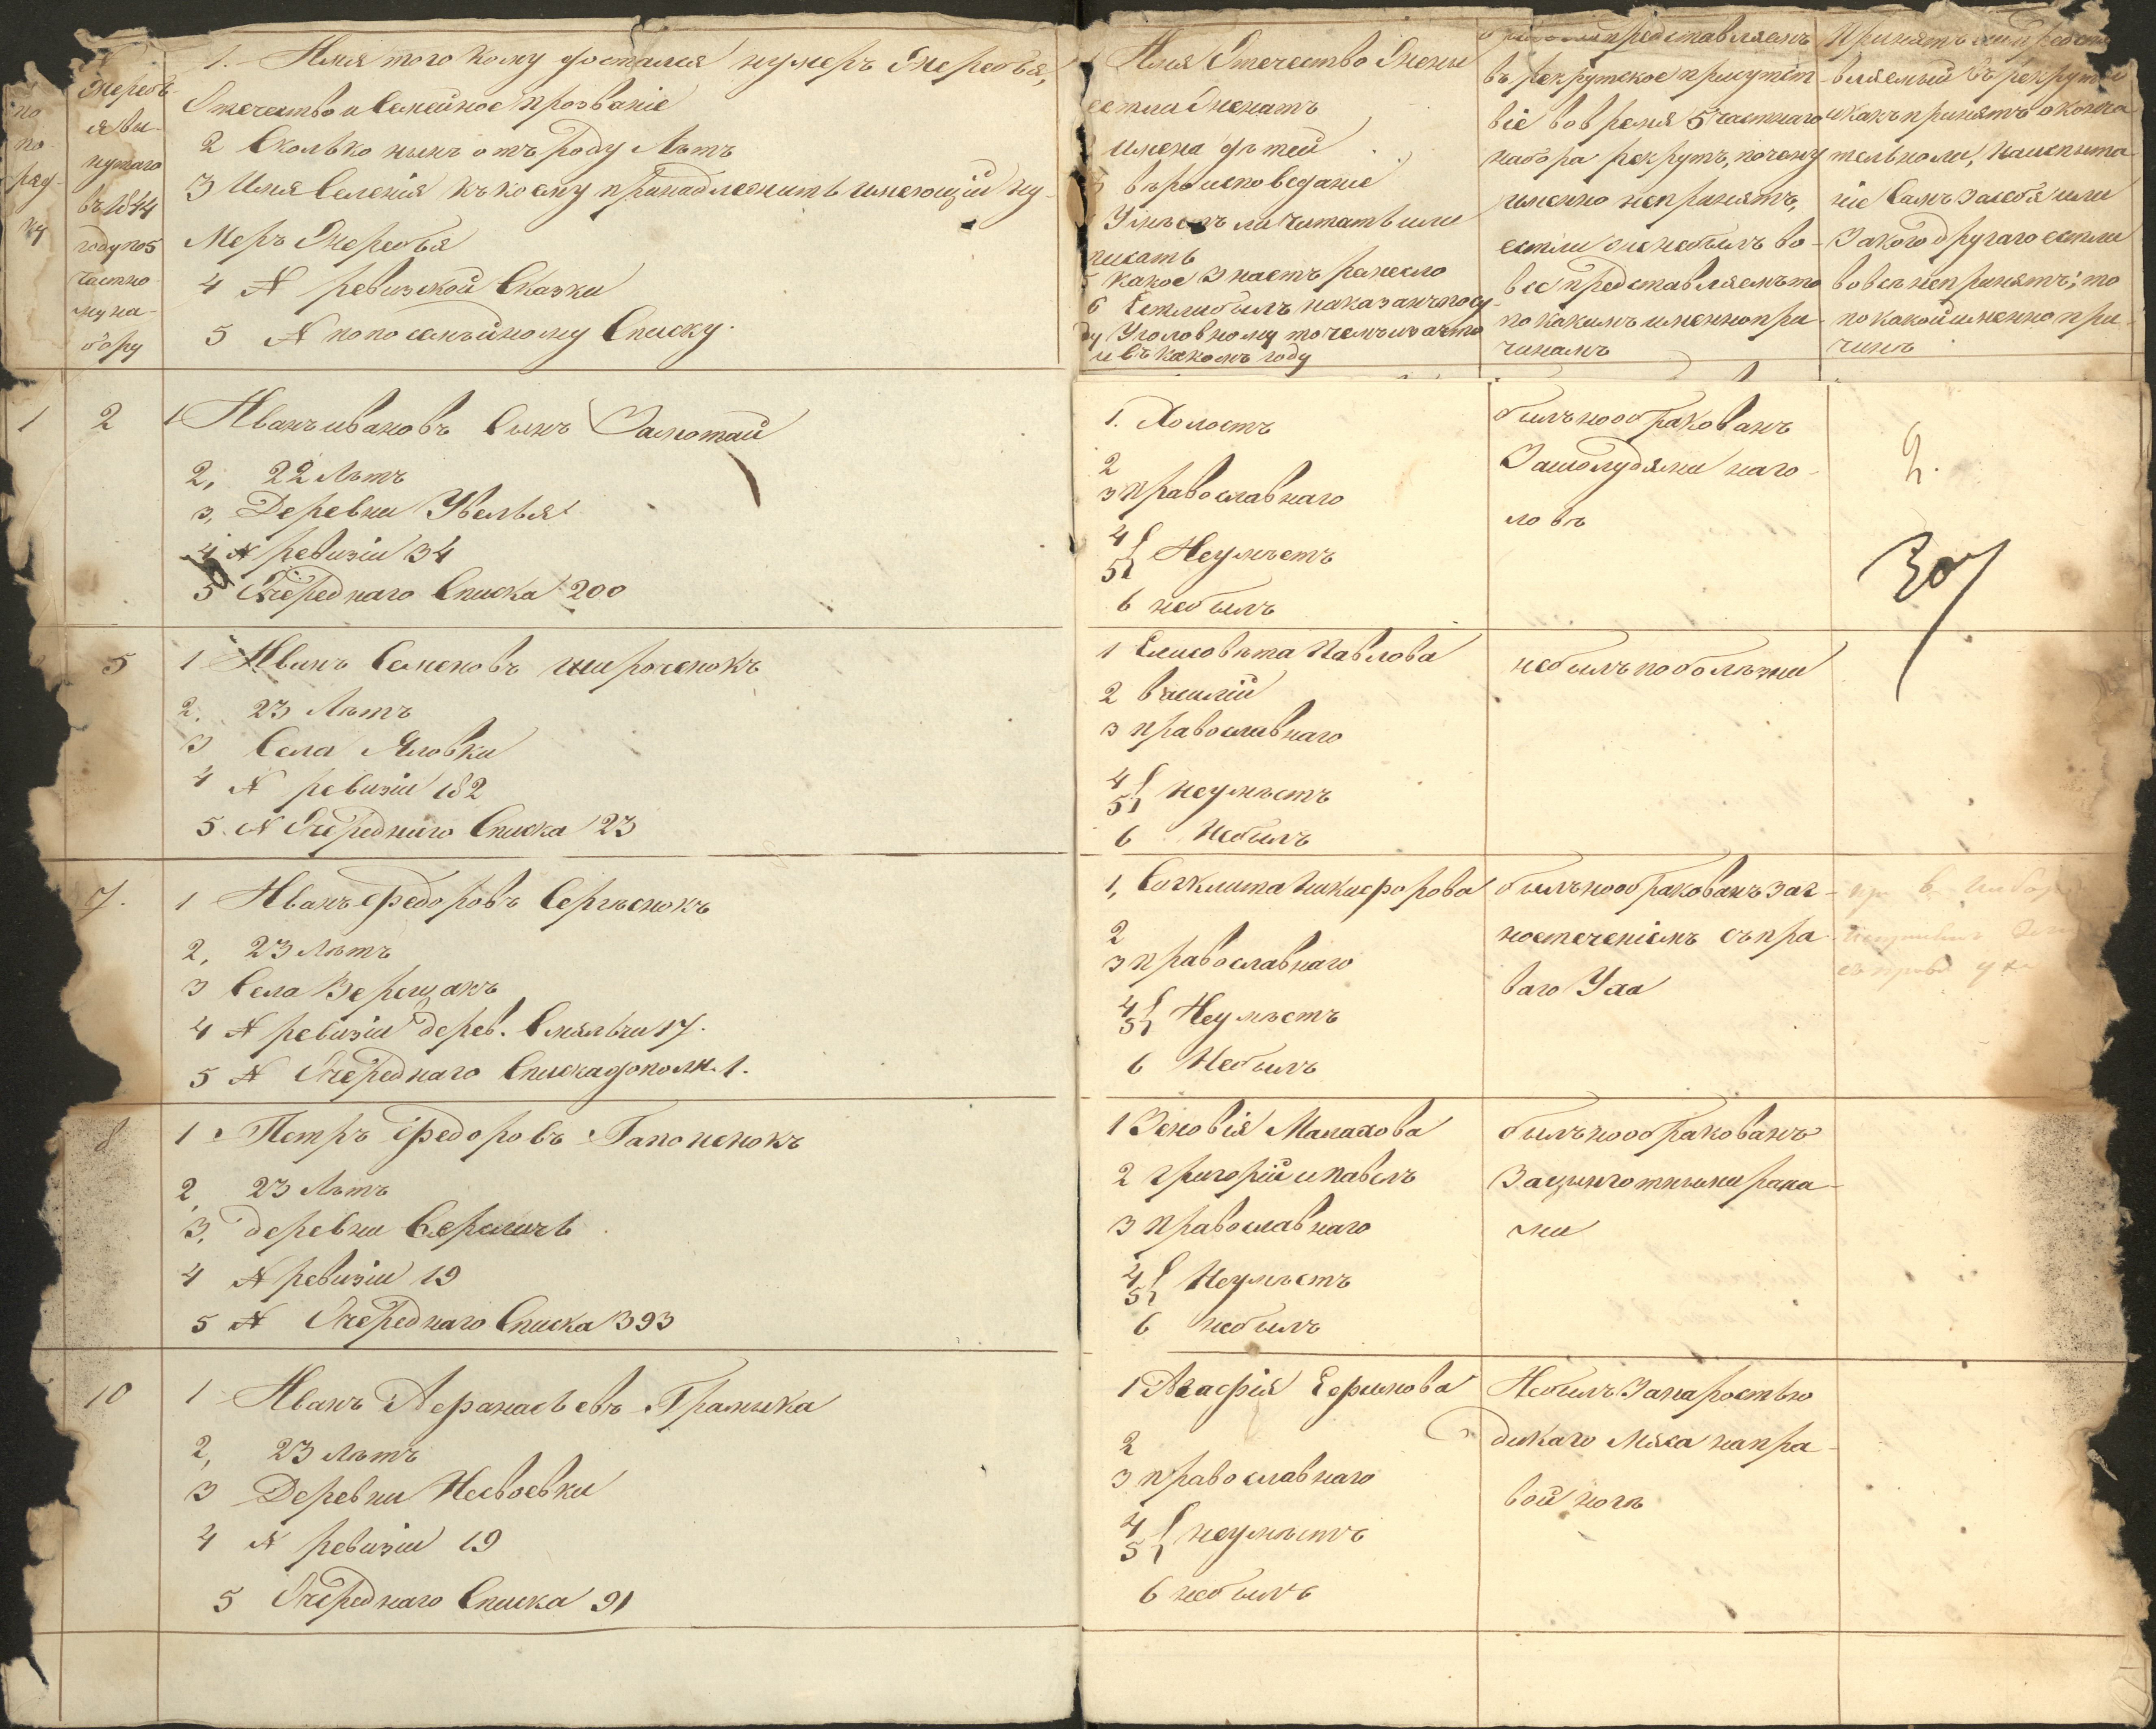 по
по
ряд-
ку
№
жеребь
я вы-
нутаго
въ 1844
году по 5
частно
му на-
бору
1. Имя того кому достался нумеръ Жеребья,
Отечество и Семейное прозваніе
2 Сколько нынѣ отъ роду Лѣтъ
3 Имя Селенія къ коему принадлежитъ имеющій ну-
меръ Жеребья
4 № ревизской Сказки
5 № по посемѣйному Списку.
Имя Отечество Жены
естли Женатъ
2 имена дѣтей
3 вѣроисповеданіе
4 Умѣетъ ли читать или
писать
5 Какое Знаетъ ремесло
6 Естли былъ наказанъ по су-
ду Уголовному то чемъ и за что
и въ какомъ году
представляемъ
въ рекрутское присутст
віе во время 5 частнаго
набора рекрутъ, почему
именно непринятъ,
естли же небылъ во-
все представляемъ то
по какимъ именно при-
чинамъ
Принятъ ли предста
вляемый въ рекруты
и какъ принятъ оконча
тельно ли, на испыта
ніе Самъ За себя или
За кого другаго естли
вовсе непринятъ, то
по какой именно при-
чинѣ
1
2
1 Иванъ ивановъ Сынъ Замотай
2, 22 Лѣтъ
3, Деревни Увелья
4 № ревизіи 34
5 Очереднаго Списка 200
1. Холостъ
2
3 православнаго
4
5 Неумѣетъ
6 небылъ
былъ но обракованъ
За шолудями на го-
ловѣ
2.
5
1 Иванъ Семеновъ широченокъ
2. 23 Лѣтъ
3 Села Яловки
4 № ревизіи 182
5. № Очереднаго Списка 23
1 Елисовѣта Павлова
2 василій
3 православнаго
4
5 неумѣетъ
6 Небылъ
небылъ по болѣзни
7.
1 Иванъ федоровъ Сергѣенокъ
2, 23 Лѣтъ
3 Села Верещакъ
4 № ревизіи дерев. Смяльчи 17.
5 № Очереднаго Списка дополн. 1.
1, никифорова
2
3 православнаго
4
5 Неумѣетъ
6 Небылъ
былъ но обракованъ за г-
ноетеченіемъ съ пра-
ваго Уха
8
1 Петръ федоровъ Гапоненокъ
2 23 Лѣтъ
3. деревни
4 № ревизіи 19
5 № Очереднаго Списка 393
1 Зеновія Малахова
2 григорій и павелъ
3 православнаго
4
5 Неумѣетъ
6 небылъ
былъ но обракованъ
За цынготными рана-
ми
10
1 Иванъ Афанасьевъ Грамыка
2, 23 Лѣтъ
3 Деревни Несвоевки
4 № ревизіи 19
5 Очереднаго Списка 91
1 Агафія Ефимова
2
3 православнаго
4
5 неумѣетъ
6 небылъ
Небылъ За наростью
дикаго Мяса на пра-
вой ногѣ